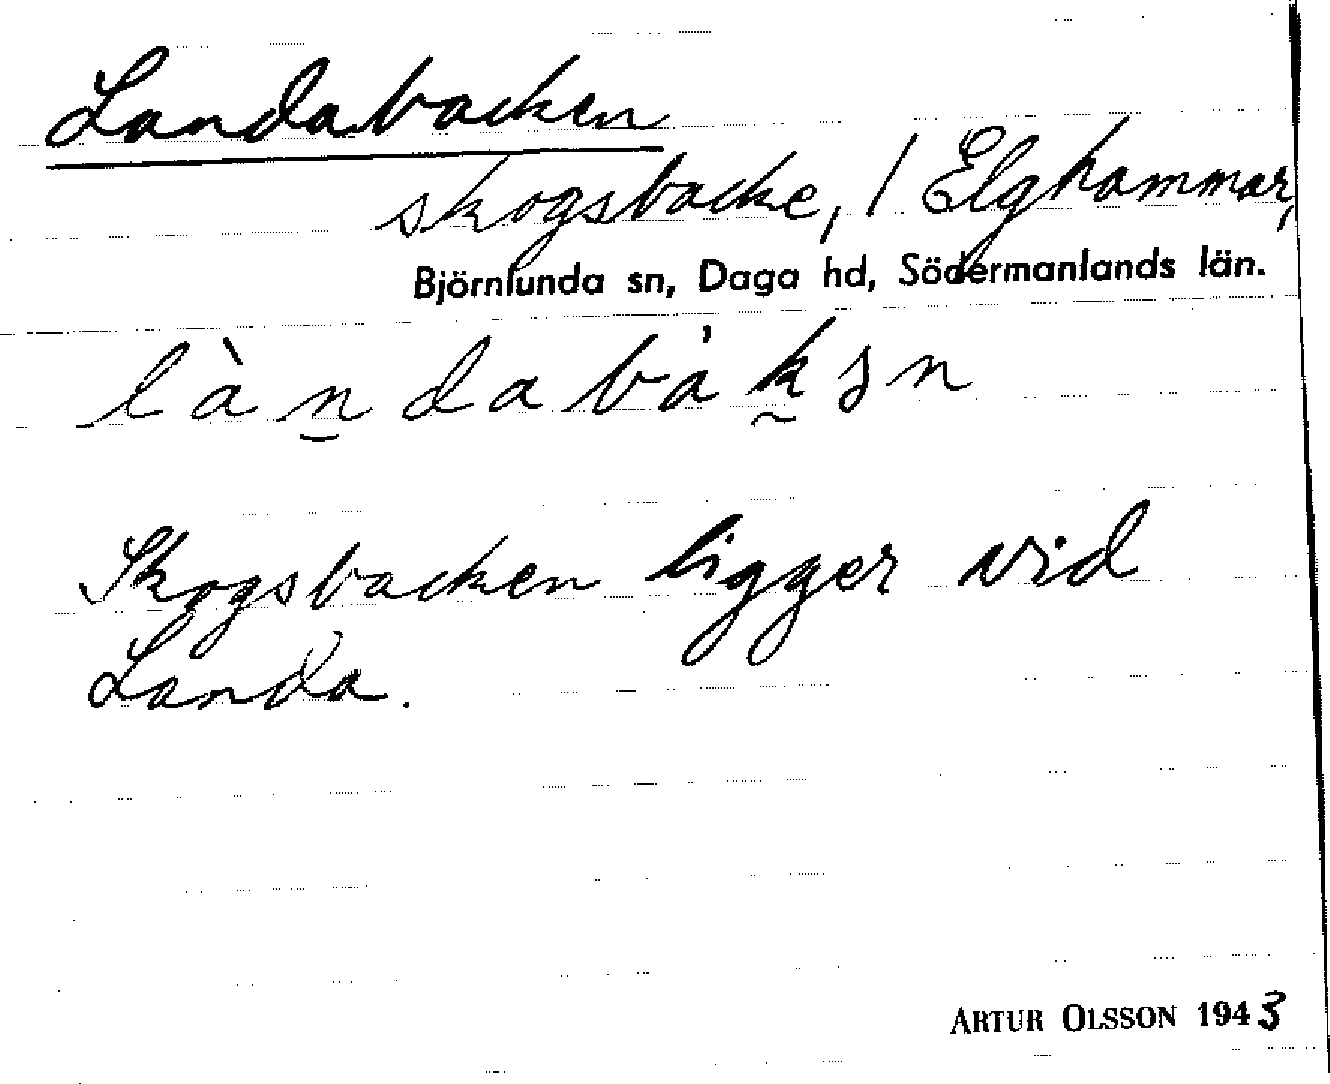 Landabacken
skogsbacke, / Elghammar,
Björnlunda sn, Daga hd, Södermanlands län.
làn̠dabàk̰ən
Skogsbacken ligger vid
Landa.
ARTUR OLSSON 1943